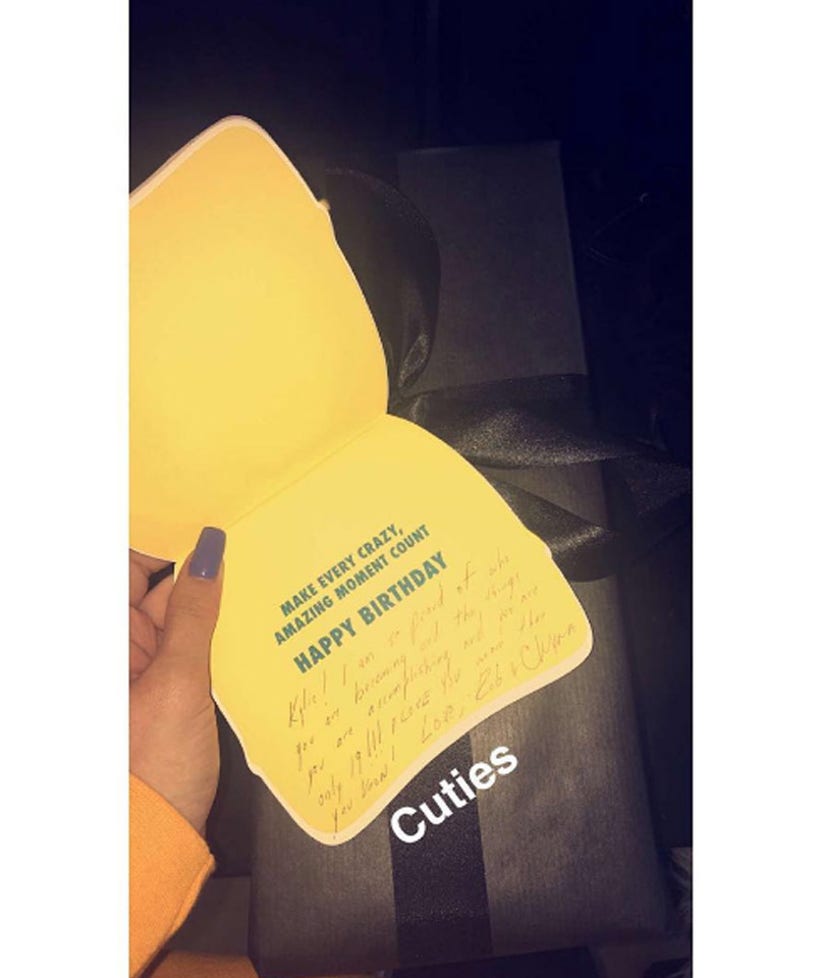 MAKE EVERY CRAZY,
AMAZING MOMENT COUNT
HAPPY BIRTHDAY
Kylie! I am so proud of who
you are becoming and the things
you are accomplishing and you are
only 19!!! I LOVE You more than
you know! LOVE, Rob & Chyna
Cuties